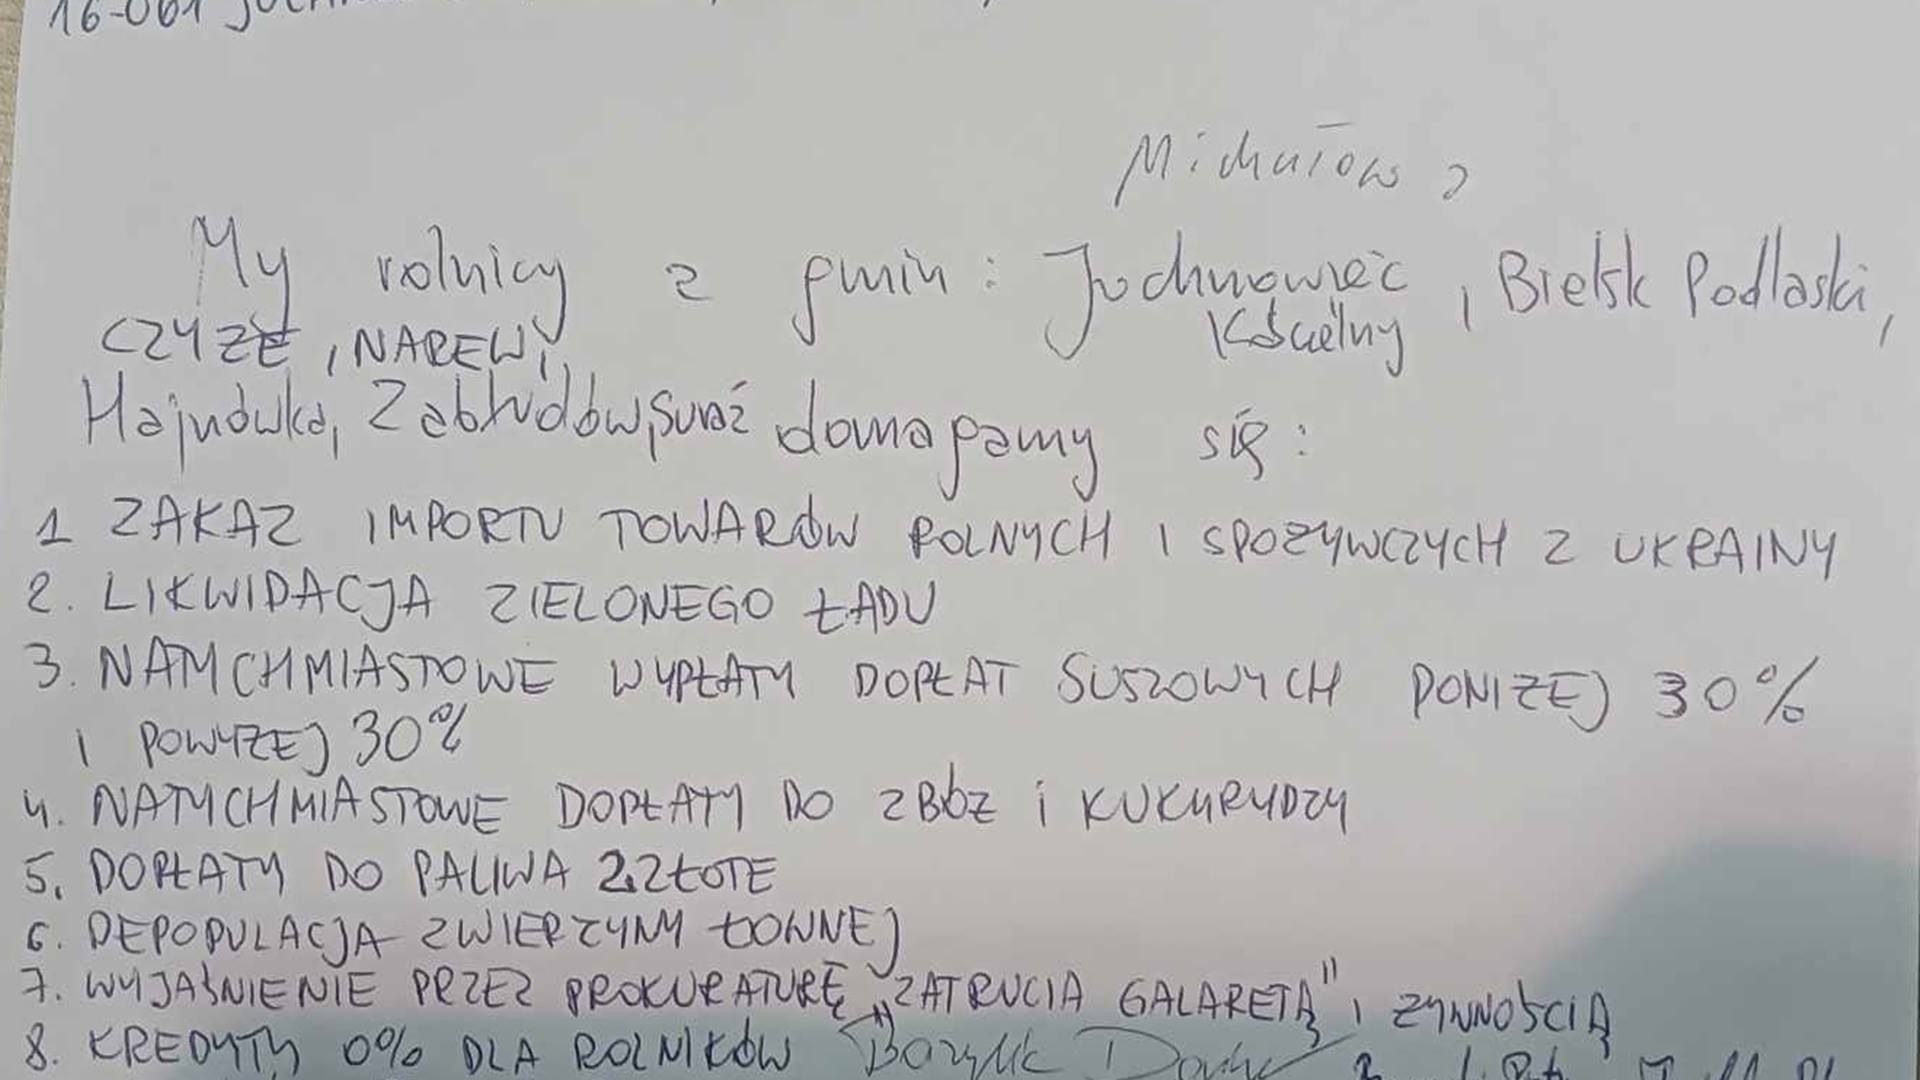 16-061
Michałowo
My rolnicy z gmin: Juchnowiec Kościelny, Bielsk Podlaski,
CZYŻE, NAREW,
Hajnówka, Zabłudów, Suraż domagamy się:
1 ZAKAZ IMPORTU TOWARÓW ROLNYCH I SPOŻYWCZYCH Z UKRAINY
2. LIKWIDACJA ZIELONEGO ŁADU
3. NAMCHMIASTOWE WYPŁATY DOPŁAT SUSZOWYCH PONIŻEJ 30%
I POWYŻEJ 30%
4. NATYCHMIASTOWE DOPŁATY DO ZBÓŻ i KUKURYDZY
5. DOPŁATY DO PALIWA 2 ZŁOTE
6. DEPOPULACJA ZWIERZYNY ŁOWNEJ
7. WYJAŚNIENIE PRZEZ PROKURATURĘ „ZATRUCIA GALARETĄ" I ŻYWNOŚCIĄ
8. KREDYTY 0% DLA ROLNIKÓW